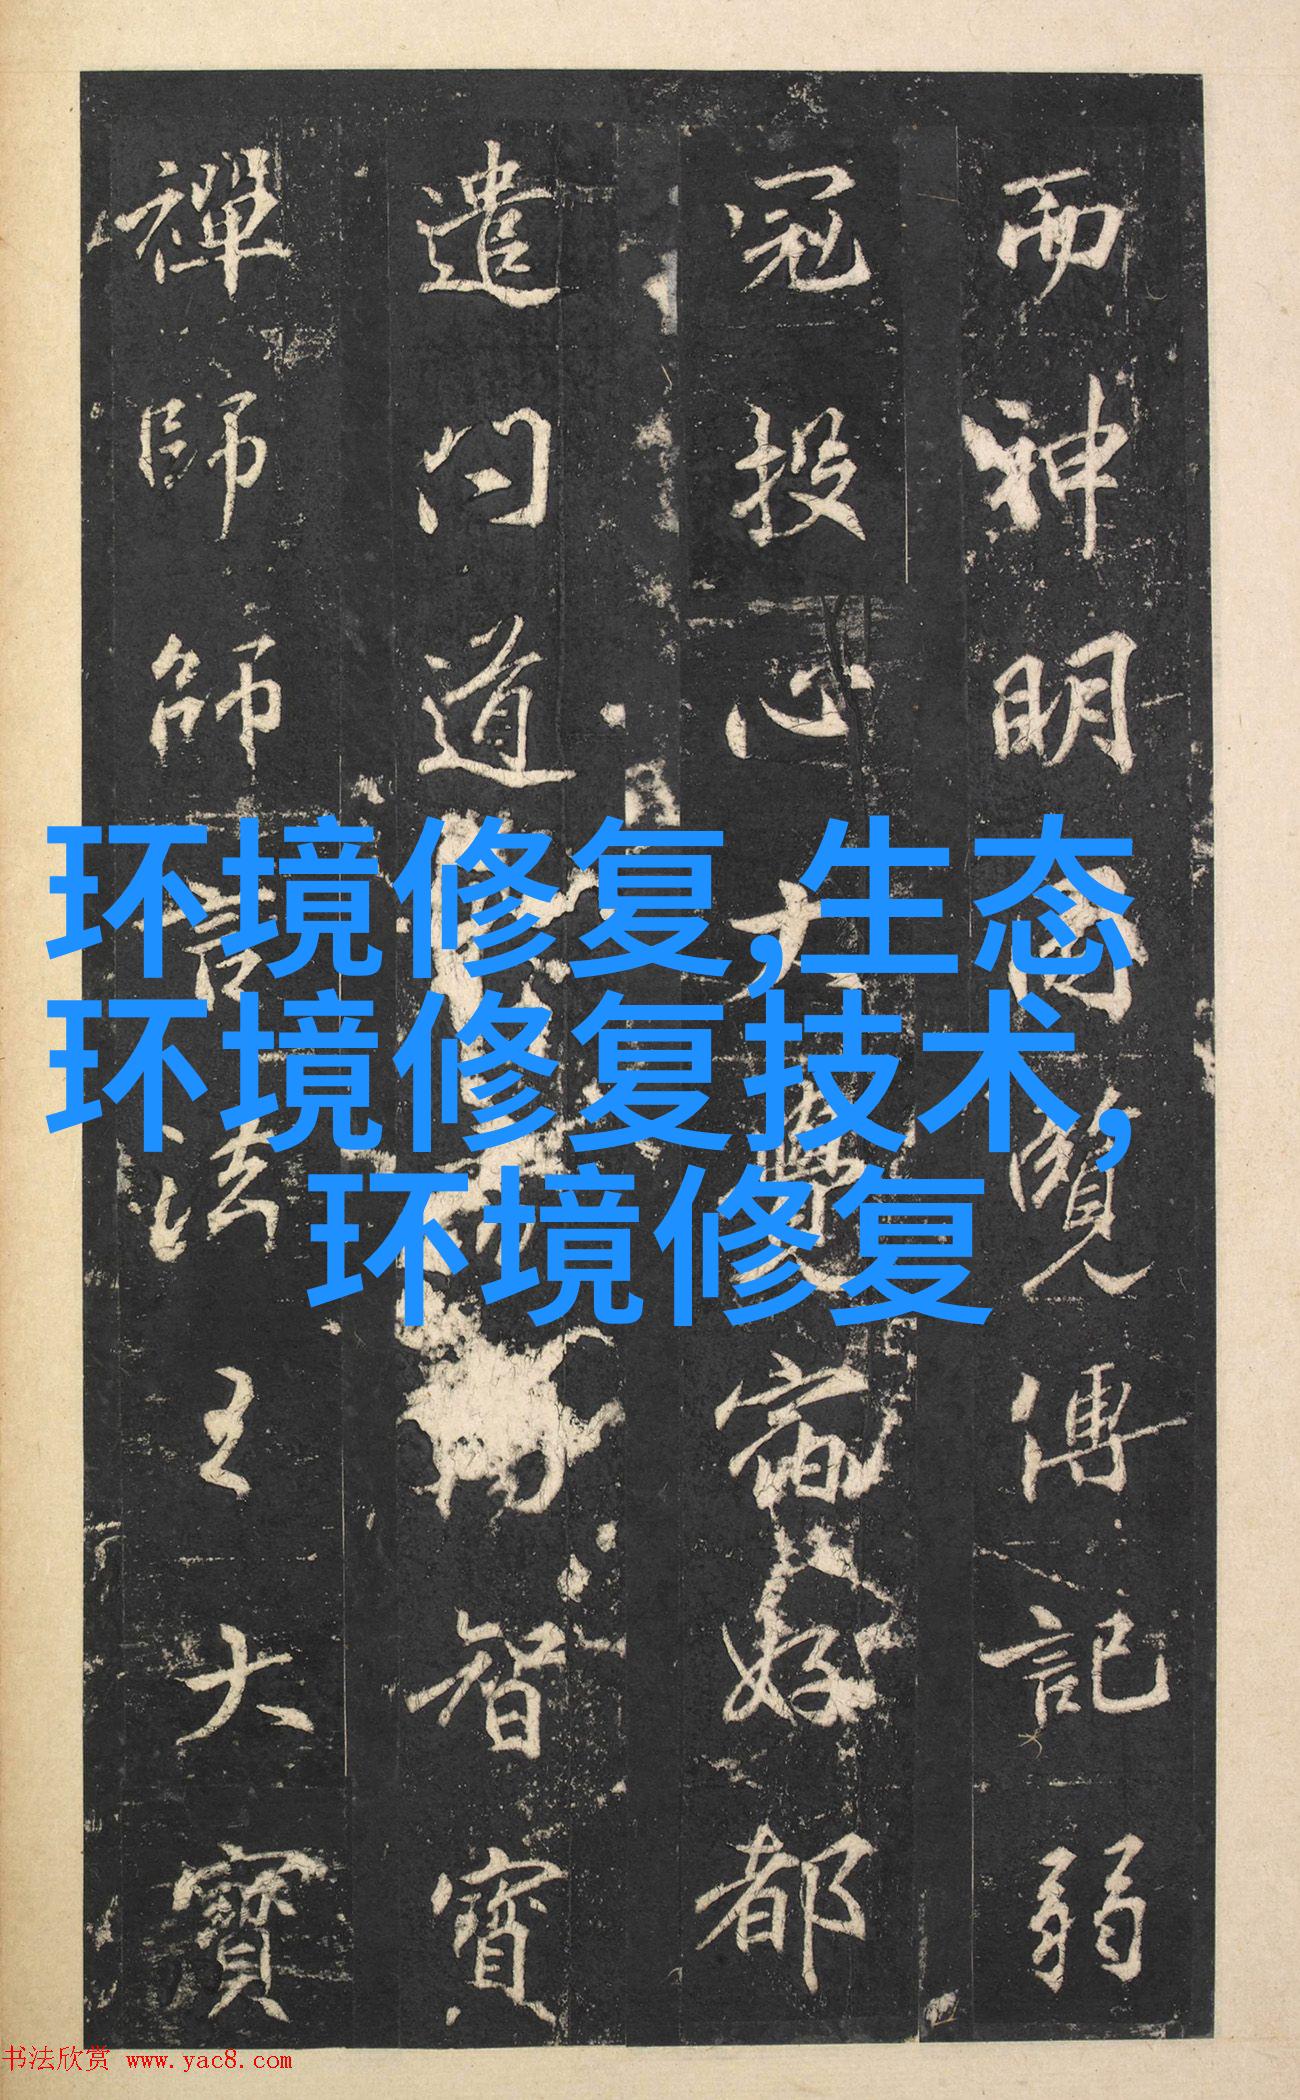 而神明覽傳記弱
冠投心大覺宿好都
遣問道智寶
禪師師法王大寶
环境修复,生态
环境修复技术,
环境修复
书法欣赏 www.yac8.com